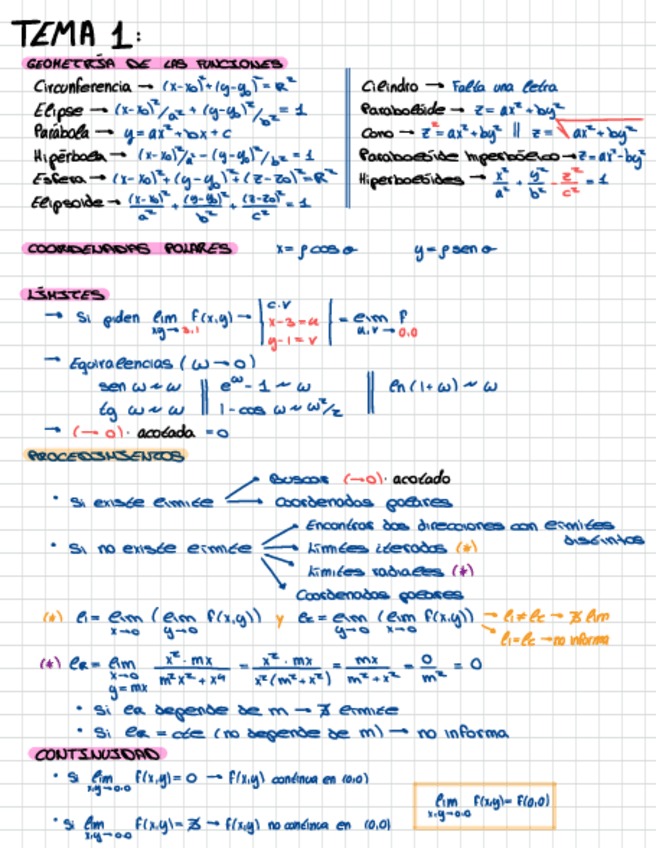 TEMA 1:
GEOMETRÍA DE LAS FUNCIONES
Circunferencia → (x-x₀)²+(y-y₀)²=R²
Elipse → (x-x₀)²/a² + (y-y₀)²/b² = 1
Parábola → y=ax²+bx+c
Hipérbola → (x-x₀)²/a² - (y-y₀)²/b² = 1
Esfera → (x-x₀)²+(y-y₀)²+(z-z₀)²=R²
Elipsoide → (x-x₀)²/a² + (y-y₀)²/b² + (z-z₀)²/c² = 1
Cilindro → Falta una letra
Paraboloide → z=ax²+by²
Cono → z²=ax²+by² || z=√ax²+by²
Paraboloide hiperbólico → z=ax²-by²
Hiperboloides → x²/a² + y²/b² - z²/c² = 1
COORDENADAS POLARES x=ρcosθ y=ρsenθ
LÍMITES
→ Si piden lim xy→3,1 f(x,y) → | c.v x-3=u y-1=v | = lim u,v→0,0 f
→ Equivalencias (ω→0)
sen ω ~ ω || e^ω - 1 ~ ω || ln(1+ω) ~ ω
tg ω ~ ω || 1-cos ω ~ ω²/2
→ (→0)· acotada = 0
PROCEDIMIENTOS
• Si existe límite
Buscar (→0)· acotado
Coordenadas polares
• Si no existe límite
Encontrar dos direcciones con límites distintos
Límites iterados (*)
Límites radiales (*)
Coordenadas polares
(*) l₁ = lim x→0 (lim y→0 f(x,y)) y l₂ = lim y→0 (lim x→0 f(x,y)) → l₁≠l₂ → ∄ lim
l₁=l₂ → no informa
(*) lR = lim x→0 y=mx x²·mx/m²x²+x⁴ = x²·mx/x²(m²+x²) = mx/m²+x² = 0/m² = 0
• Si lR depende de m → ∄ límite
• Si lR = cte (no depende de m) → no informa
CONTINUIDAD
• Si lim x,y→0,0 f(x,y)=0 → f(x,y) continua en (0,0)
lim x,y→0,0 f(x,y)=f(0,0)
• Si lim x,y→0,0 f(x,y)=∄ → f(x,y) no continua en (0,0)